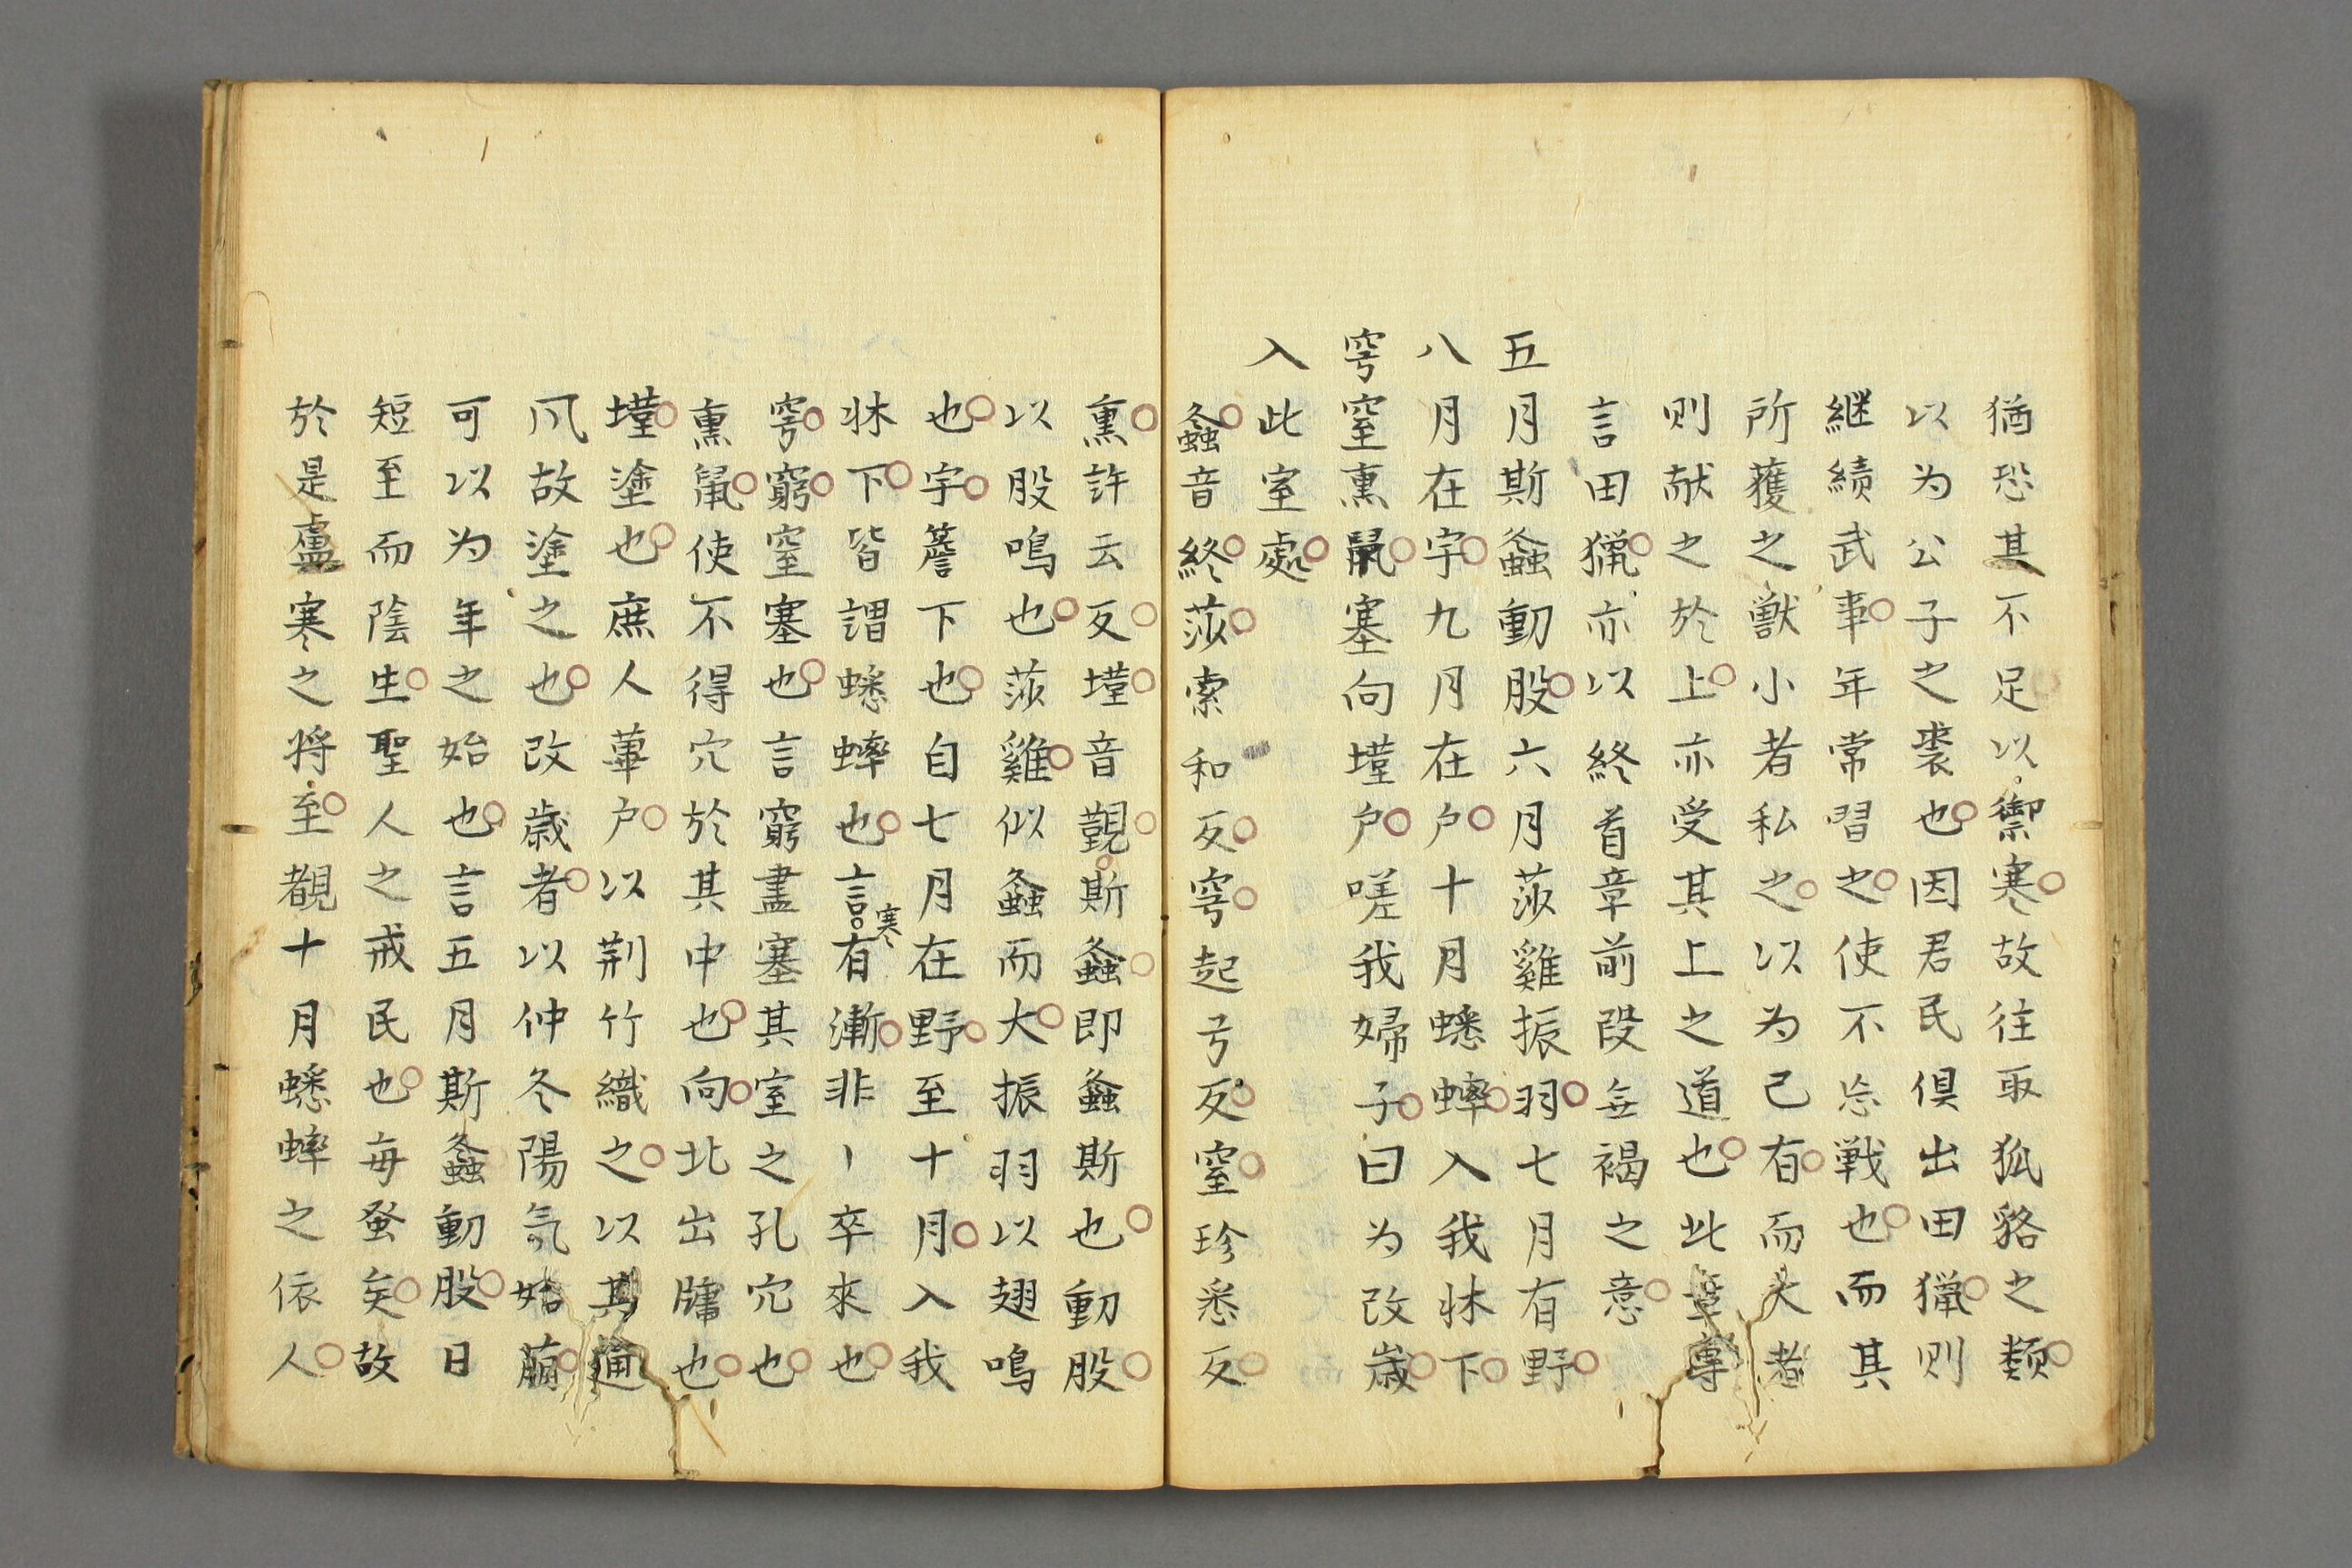 猶恐其不足以禦寒故往取狐貉之類
以为公子之裘也因君民俱出田猟则
継績武事年常習之使不忘戦也而其
所獲之獣小者私之以为己有而大者
则献之於上亦受其上之道也此章専
言田猟亦以終首章前段無褐之意
五月斯螽動股六月莎雞振羽七月有野
八月在宇九月在户十月蟋蟀入我牀下
穹窒熏鼠塞向墐户嗟我婦子曰为改歳
入此室處
螽音終莎索和反穹起弓反窒珍悉反
熏許云反墐音覲斯螽即螽斯也動股
以股鳴也莎雞似螽而大振羽以翅鳴
也宇簷下也自七月在野至十月入我
牀下皆謂蟋蟀也言寒有漸非一卒來也
穹窮窒塞也言窮盡塞其室之孔穴也
熏鼠使不得穴於其中也向北出牖也
墐塗也庶人蓽户以荆竹織之以其通
风故塗之也改歳者以仲冬陽気始萠
可以为年之始也言五月斯螽動股日
短至而陰生聖人之戒民也毎蚤矣故
於是慮寒之将至覩十月蟋蟀之依人